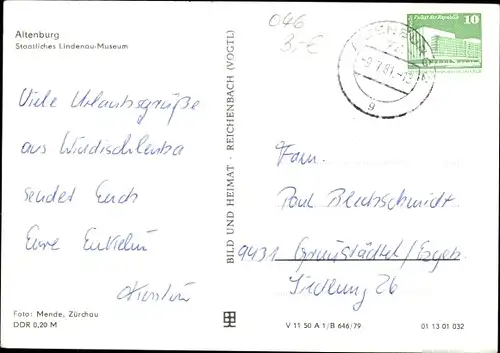 Altenburg
Staatliches Lindenau-Museum
046
3,-€
10
Palast der Republik
-9.7.81.-13
g
Viele Urlaubsgrüße
aus Windischleuba
sendet Euch
Eure Enkelin
Kerstin
BILD UND HEIMAT · REICHENBACH (VOGTL)
Fam.
Paul Blechschmidt
9431 Grünstädtel/Erzgeb.
Siedlung 26
Foto: Mende, Zürchau
DDR 0,20 M
V 11 50 A 1/B 646/79
01 13 01 032